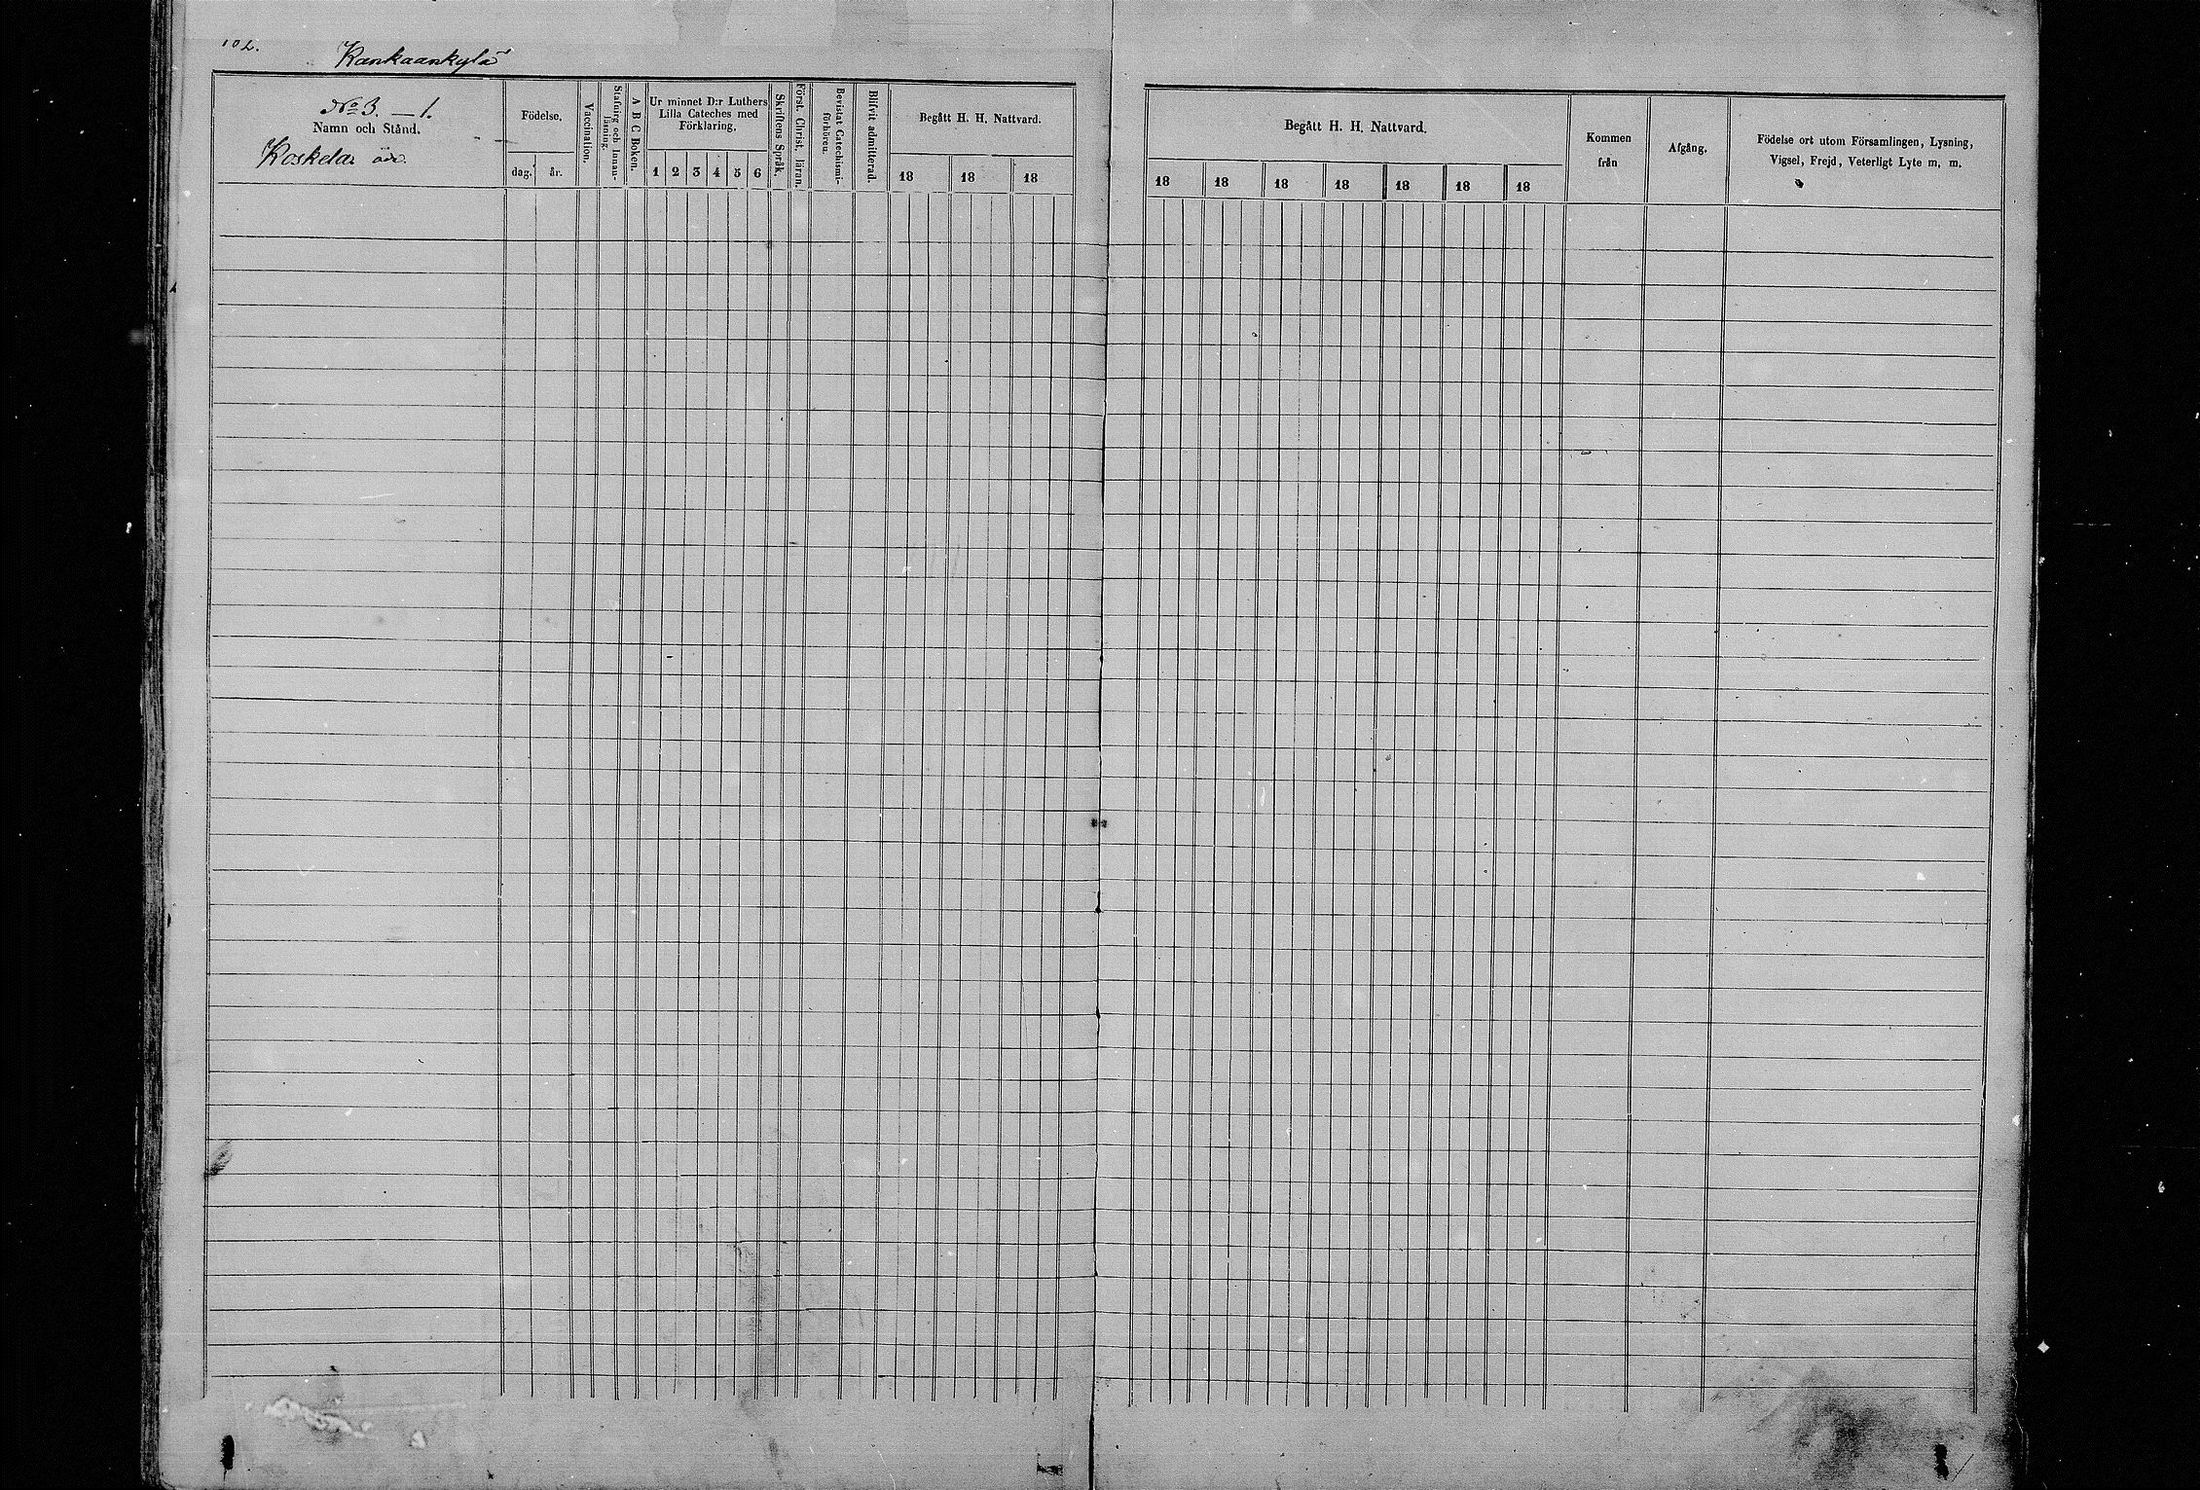 102.
Kankaankylä
No 3. — 1.
Namn och Stånd.
Koskela
Födelse.
dag. år.
Vaccination.
Stafning och Innan-
läsning.
A B C Boken.
Ur minnet D:r Luthers
Lilla Cateches med
Förklaring.
1 2 3 4 5 6
Skriftens Språk.
Först. Christ. läran.
Bevistat Catechismi-
förhören.
Blifvit admitterad.
Begått H. H. Nattvard.
18 18 18
Begått H. H. Nattvard.
18 18 18 18 18 18 18
Kommen
från
Afgång.
Födelse ort utom Församlingen, Lysning,
Vigsel, Frejd, Veterligt Lyte m. m.